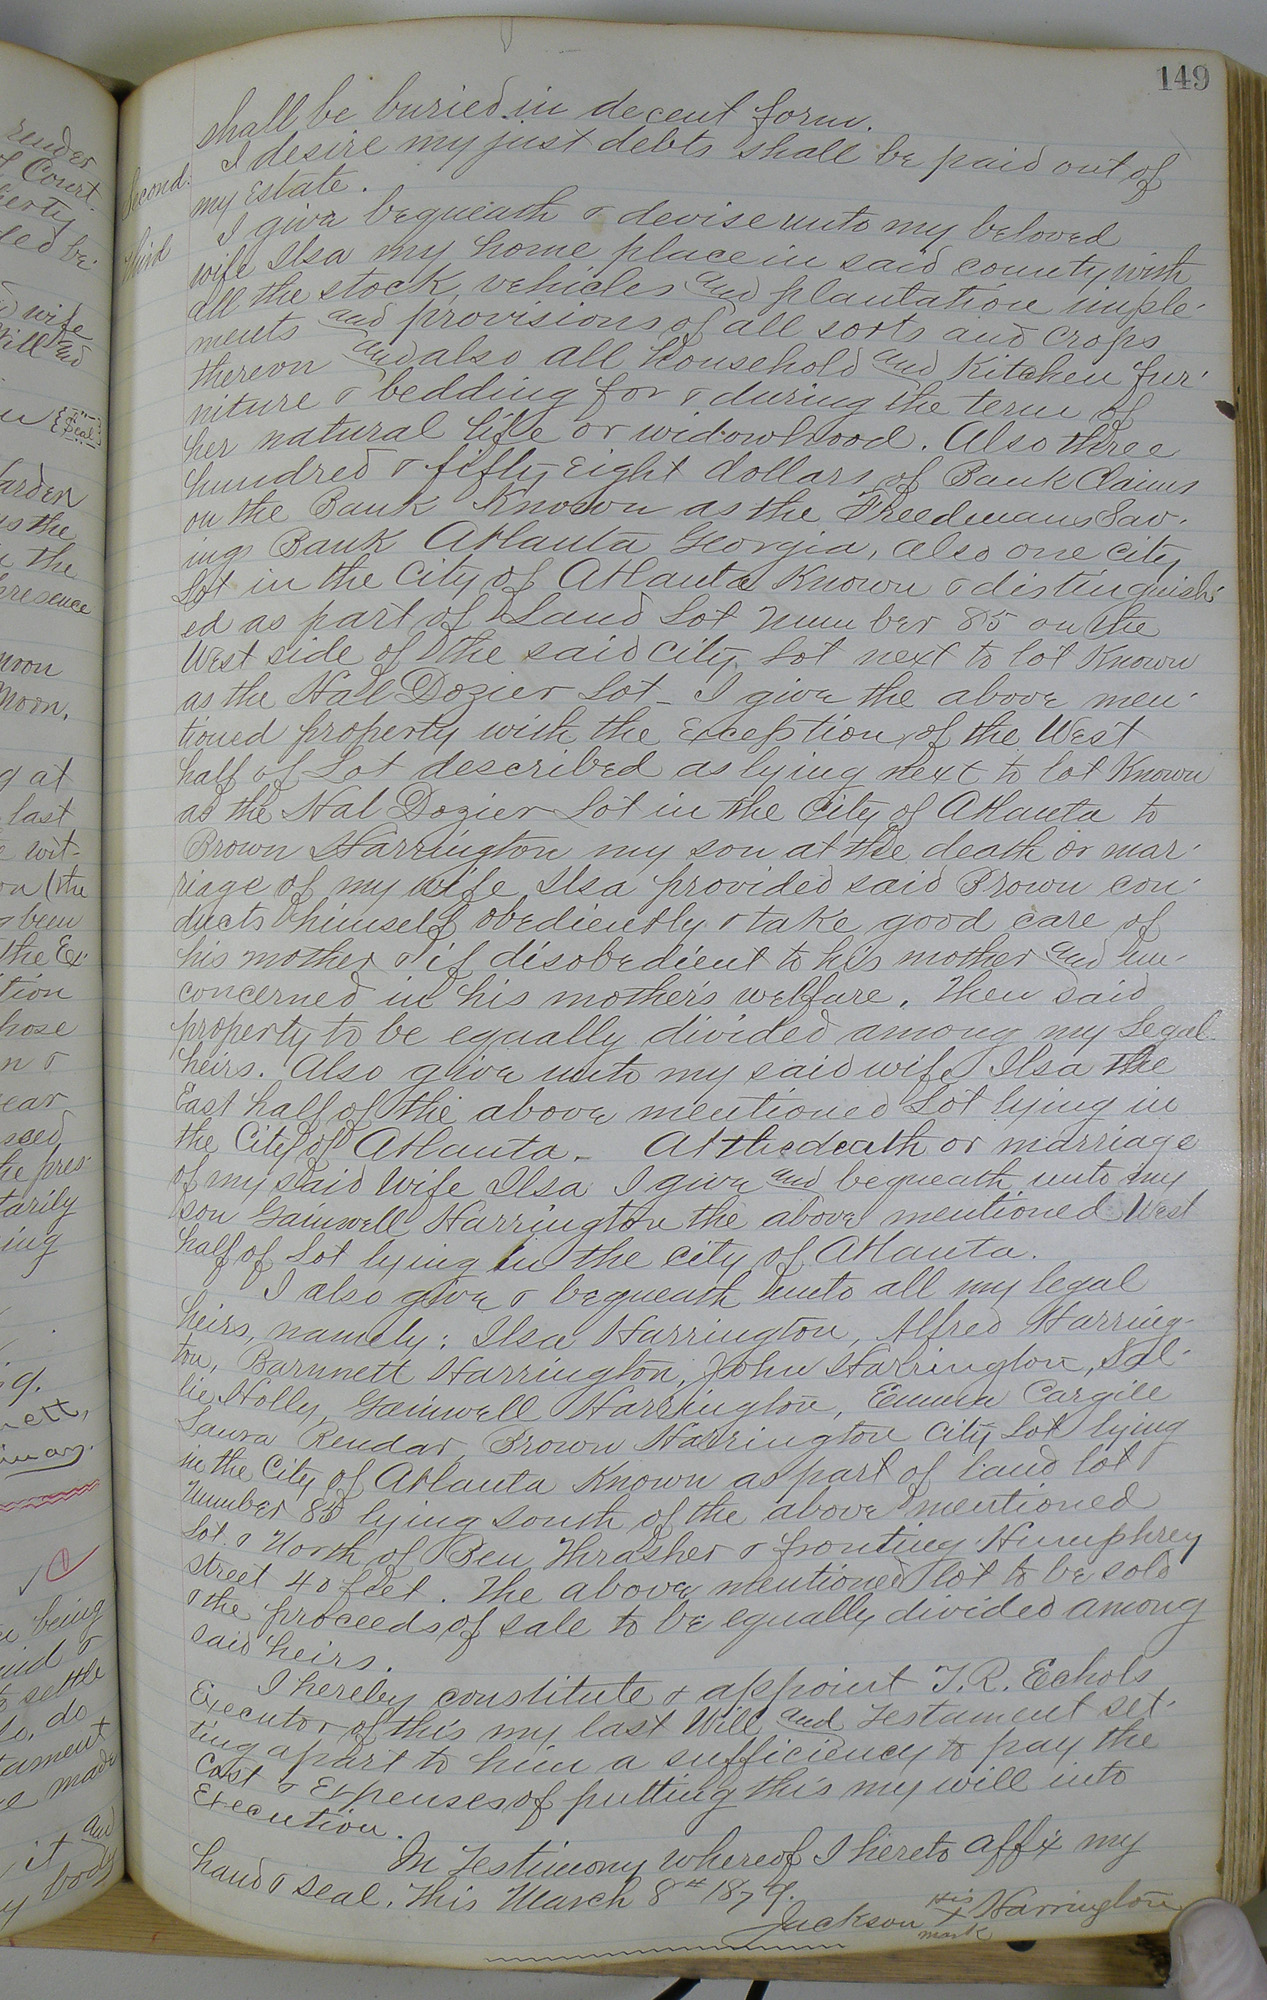 render
of Court.
wife
Will and
{Seal}
arden
as the
in the
presence
moon
Moon.
g at
last
wit-
on (the
been
the Ex-
tion
hose
n &
ear
ssed
he pres-
tarily
ing
being
and &
to settle
do
tament
made
and
it
body
149
shall be buried in decent form.
Second. I desire my just debts shall be paid out of
my Estate.
Third I give bequeath & devise unto my beloved
wife Ilsa my home place in said county with
all the stock, vehicles and plantation imple-
ments and provisions of all sorts and crops
thereon and also all household and Kitchen fur-
niture & bedding for & during the term of
her natural life or widowhood. Also three
hundred & fifty Eight dollars of Bank Claims
on the Bank Known as the Freedmans Sav-
ings Bank Atlanta Georgia, also one city
Lot in the City of Atlanta Known & distinguish-
ed as part of Land Lot Number 85 on the
West side of the said City Lot next to lot Known
as the Hal Dozier Lot _ I give the above men-
tioned property with the Exception of the West
half of Lot described as lying next to lot Known
as the Hal Dozier Lot in the City of Atlanta to
Brown Harrington my son at the death or mar-
riage of my wife Ilsa provided said Brown con-
ducts himself obediently & take good care of
his mother & if disobedient to his mother and un-
concerned in his mother's welfare. Then said
property to be equally divided among my Legal
heirs. Also give unto my said wife Ilsa the
East half of the above mentioned Lot lying in
the City of Atlanta. _ At the death or marriage
of my said Wife Ilsa I give and bequeath unto my
son Gainwell Harrington the above mentioned West
half of Lot lying in the city of Atlanta.
I also give & bequeath unto all my legal
heirs, namely: Ilsa Harrington, Alfred Harring-
ton, Barnnett Harrington, John Harrington, Sal-
lie Holly, Gainwell Harrington, Emma Cargile
Laura Rendar, Brown Harrington City Lot lying
in the City of Atlanta Known as part of land lot
Number 85 lying South of the above mentioned
Lot & North of Ben Thrasher & fronting Humphrey
street 40 feet. The above mentioned lot to be sold
& the proceeds of sale to be equally divided among
said heirs.
I hereby constitute & appoint T. R. Echols
Executor of this my last Will and Testament set-
ting apart to him a sufficiency to pay the
Cost & Expenses of putting this my will into
Execution.
In Testimony whereof I hereto affix my
hand & seal. This March 8th 1879.
Jackson his X mark Harrington